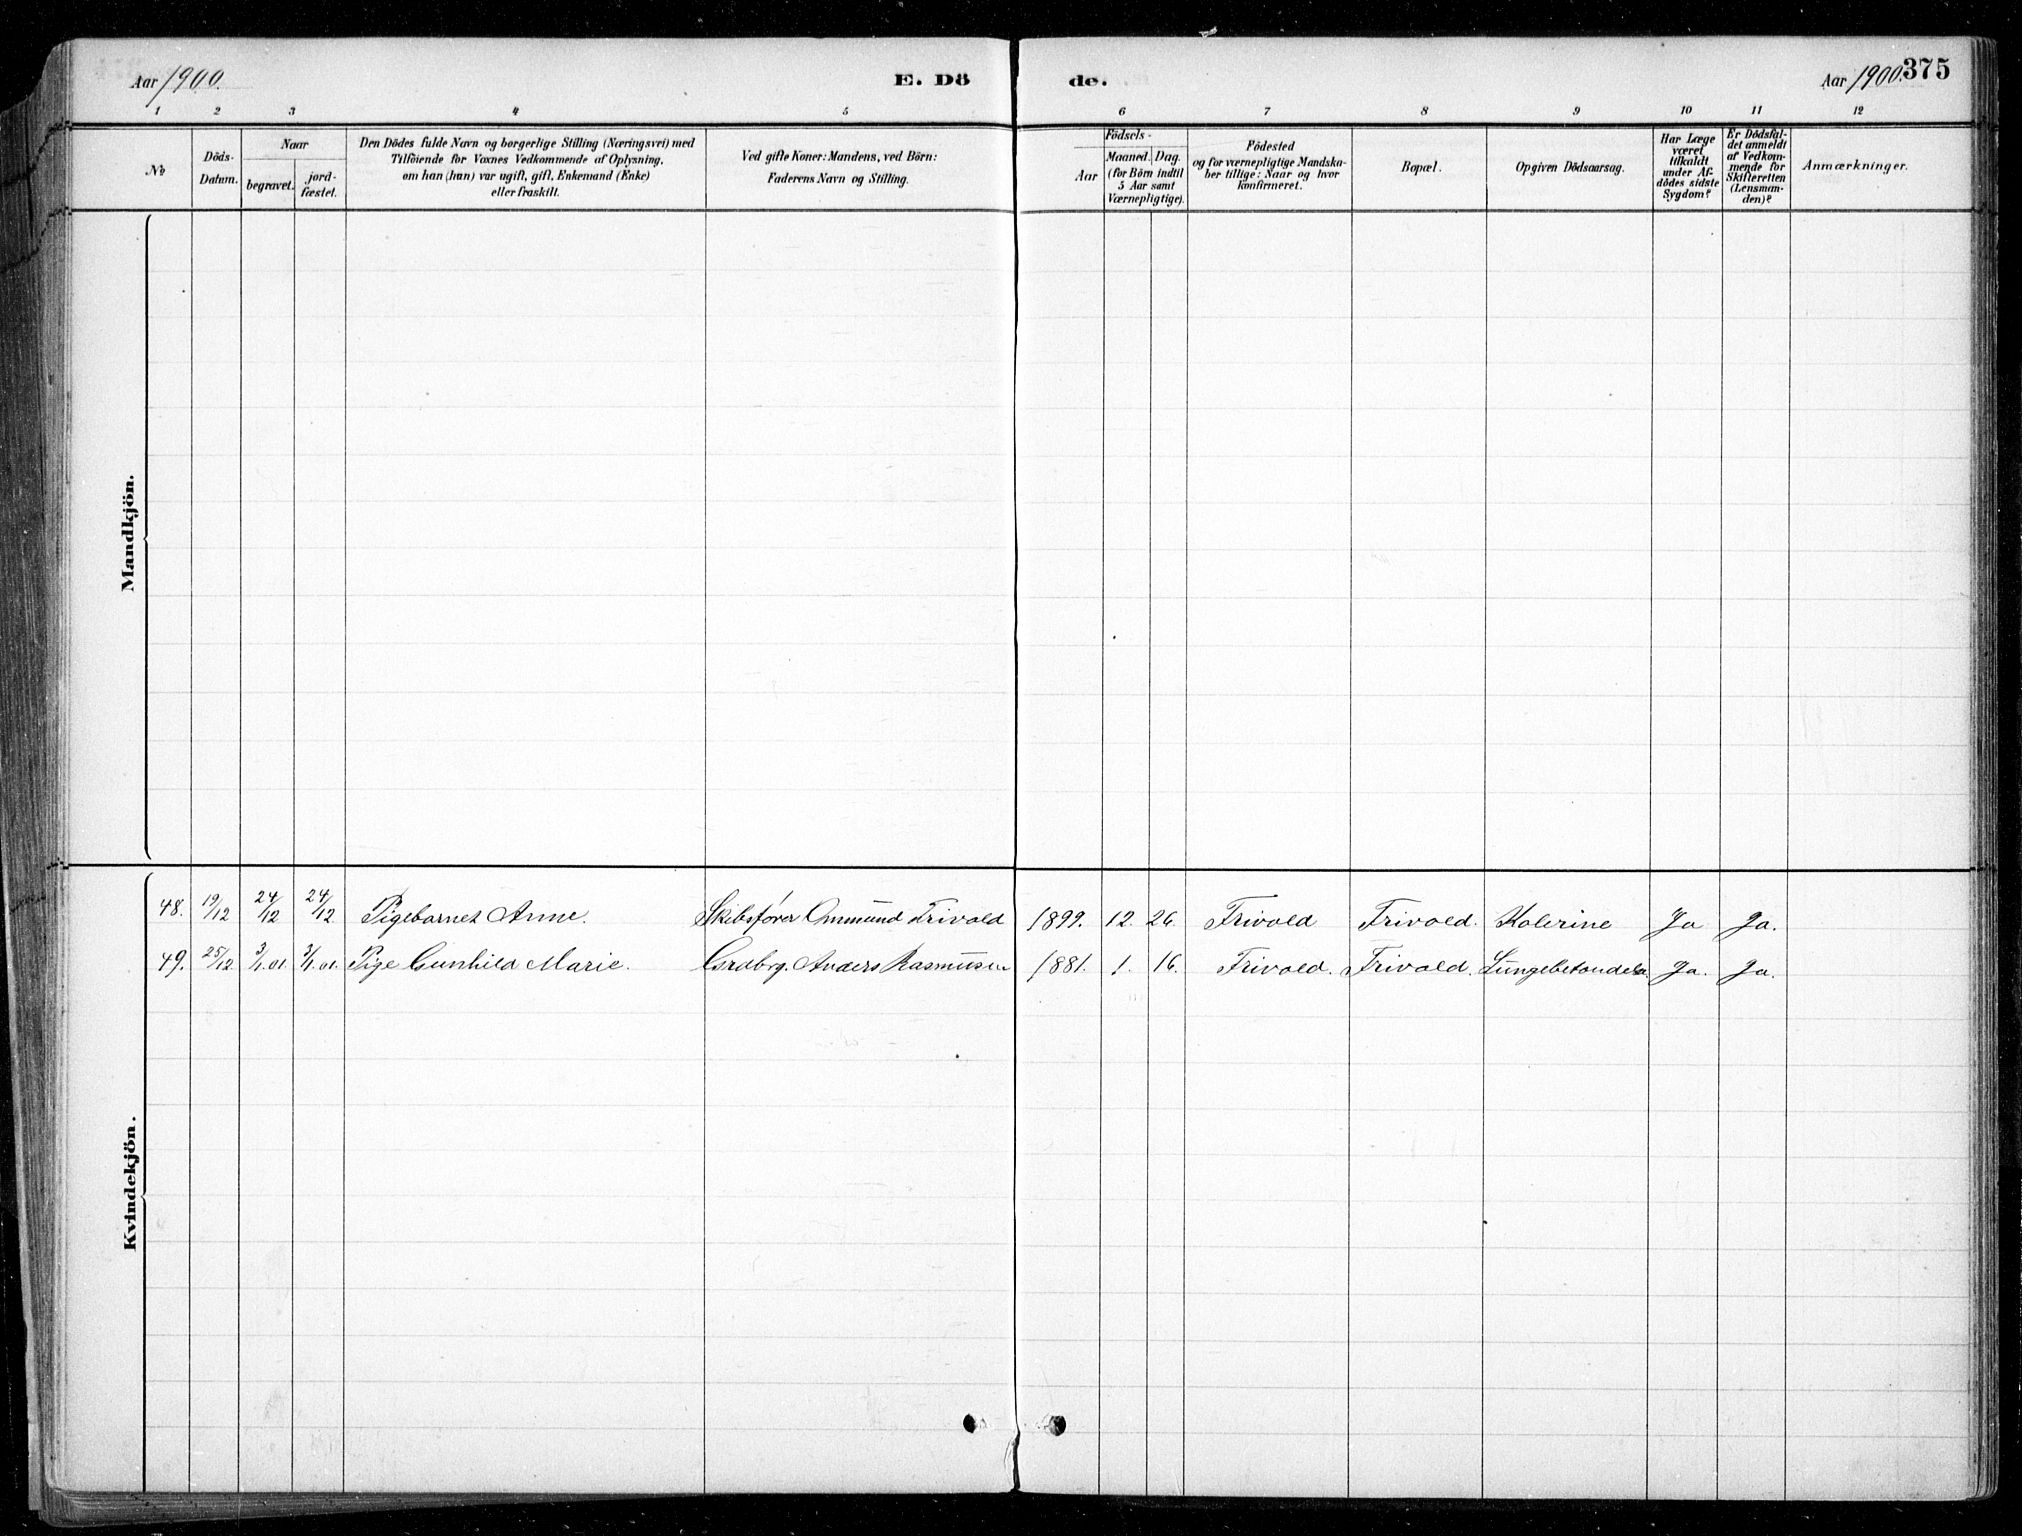 Aar 1900.
E. Dö
de.
Aar 1900.
375
1 2 3 4 5 6 7 8 9 10 11 12
No
Döds-
Datum.
Naar
begravet.
jord-
fæstet.
Den Dödes fulde Navn og borgerlige Stilling (Næringsvei) med
Tilföiende for Voxnes Vedkommende af Oplysning,
om han (hun) var ugift, gift, Enkemand (Enke)
eller fraskilt.
Ved gifte Koner: Mandens, ved Börn:
Faderens Navn og Stilling.
Födsels-
Aar
Maaned. Dag.
(for Börn indtil
5 Aar samt
Værnepligtige).
Födested
og for værnepligtige Mandska-
ber tillige: Naar og hvor
konfirmeret.
Bopæl.
Opgiven Dödsaarsag.
Har Læge
været
tilkaldt
under Af-
dödes sidste
Sygdom?
Er Dödsfal-
det anmeldt
af Vedkom-
mende for
Skifteretten
(Lensman-
den)?
Anmærkninger.
Mandkjön.
Kvindekjön.
48. 19/12 24/12 24/12 Pigebarnet Anne. Skibsfører Ommund Frivold 1899. 12. 26. Frivold Frivold. Kolerine Ja Ja.
49. 25/12 3/1.01 3/1.01. Pige Gunhild Marie. Grdbrg. Anders Rasmussen 1881. 1. 16. Frivold. Frivold. Lungebetændelse. Ja. Ja.